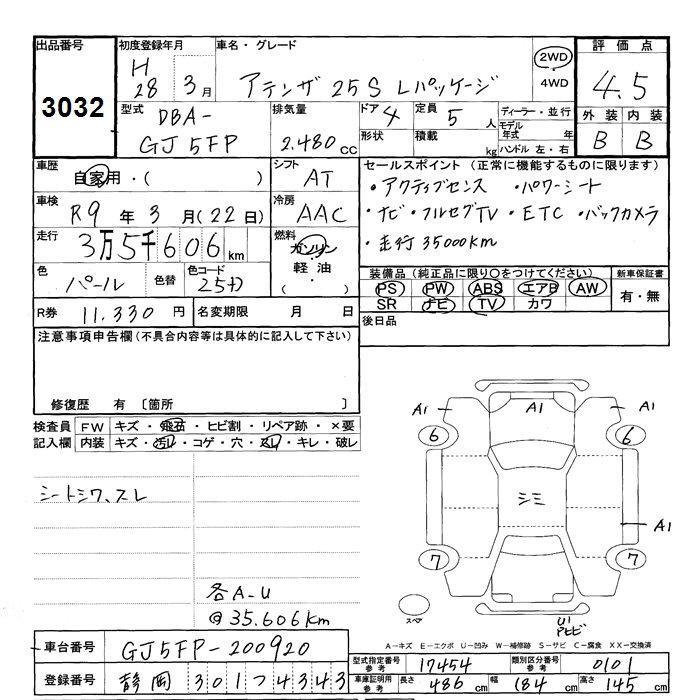 出品番号
3032
初度登録年月
H 28 3月
車名・グレード
アテンザ 25S Lパッケージ
2WD
4WD
評価点
4.5
外装 内装
B B
型式
DBA-
GJ5FP
排気量
2.480cc
ドア 4
形状
定員 5人
積載 kg
ディーラー・並行
モデル年式 年
ハンドル 左・右
車歴
自家用・( )
シフト
AT
車検
R9年3月(22日)
冷房
AAC
走行
3万5千606km
燃料
ガソリン
軽油
( )
色
パール
色替
色コード
25D
R券 11.330円
名変期限 月 日
セールスポイント(正常に機能するものに限ります)
・アクティブセンス ・パワーシート
・ナビ・フルセグTV・ETC・バックカメラ
・走行35000km
装備品(純正品に限り○をつけてください)
PS PW ABS エアB AW
SR ナビ TV カワ
新車保証書
有・無
後日品
注意事項申告欄(不具合内容等は具体的に記入して下さい)
修復歴 有 〔箇所 〕
検査員記入欄
FW キズ・飛石・ヒビ割・リペア跡・×要
内装 キズ・汚レ・コゲ・穴・スレ・キレ・破レ
シートシワ、スレ
各A-U
@35.606km
A1 A1 A1
6 6
シミ
A1
7 7
スペア
U1
アヒビ
A-キズ E-エクボ U-凹み W-補修跡 S-サビ C-腐食 XX-交換済
車台番号 GJ5FP-200920
登録番号 静岡 301 ソ 4343
型式指定番号参考 17454
類別区分番号参考 0101
車庫証明用参考 長さ 486cm 幅 184cm 高さ 145cm